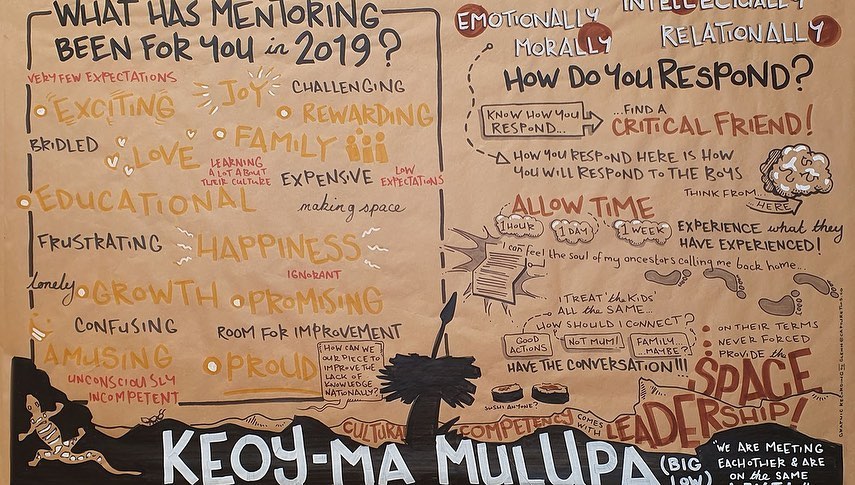 WHAT HAS MENTORING
BEEN FOR YOU in 2019?
VERY FEW EXPECTATIONS
EXCITING
JOY
CHALLENGING
REWARDING
BRIDLED
LOVE
FAMILY
LEARNING
A LOT ABOUT
THEIR CULTURE
EXPENSIVE
LOW
EXPECTATIONS
EDUCATIONAL
making space
FRUSTRATING
HAPPINESS
lonely
GROWTH
IGNORANT
PROMISING
CONFUSING
ROOM FOR IMPROVEMENT
AMUSING
PROUD
HOW CAN WE
OUR PIECE TO
IMPROVE THE
LACK OF
KNOWLEDGE
NATIONALLY?
UNCONSCIOUSLY
INCOMPETENT
EMOTIONALLY
INTELLECTUALLY
MORALLY
RELATIONALLY
HOW DO YOU RESPOND?
KNOW HOW YOU
RESPOND...
...FIND A
CRITICAL FRIEND!
HOW YOU RESPOND HERE IS HOW
YOU WILL RESPOND TO THE BOYS
THINK FROM...
HERE
ALLOW TIME
1 HOUR
1 DAY
1 WEEK
EXPERIENCE what they
HAVE EXPERIENCED!
I can feel the soul of my ancestors calling me back home...
I TREAT 'the KIDS'
ALL the SAME...
HOW SHOULD I CONNECT?
GOOD
ACTIONS
NOT MUM!
FAMILY...
...MAYBE?
HAVE THE CONVERSATION!!!
ON THEIR TERMS
NEVER FORCED
PROVIDE the
SPACE
SUSHI ANYONE?
CULTURAL COMPETENCY COMES WITH LEADERSHIP!
KEOY-MA MULUPA (BIG LOW)
"WE ARE MEETING
EACHOTHER & ARE
ON the SAME